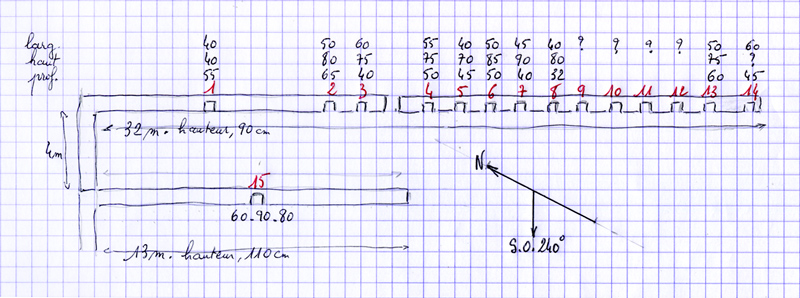 larg. 40 50 60 55 40 50 45 40 ? ? ? ? 50 60
haut. 40 80 75 75 70 85 90 80 75 ?
prof. 55 65 40 50 45 50 40 32 60 45
1 2 3 4 5 6 7 8 9 10 11 12 13 14
32 m. hauteur, 90 cm
4m
15
60.90.80
13 m. hauteur, 110 cm
N
S.O. 240°